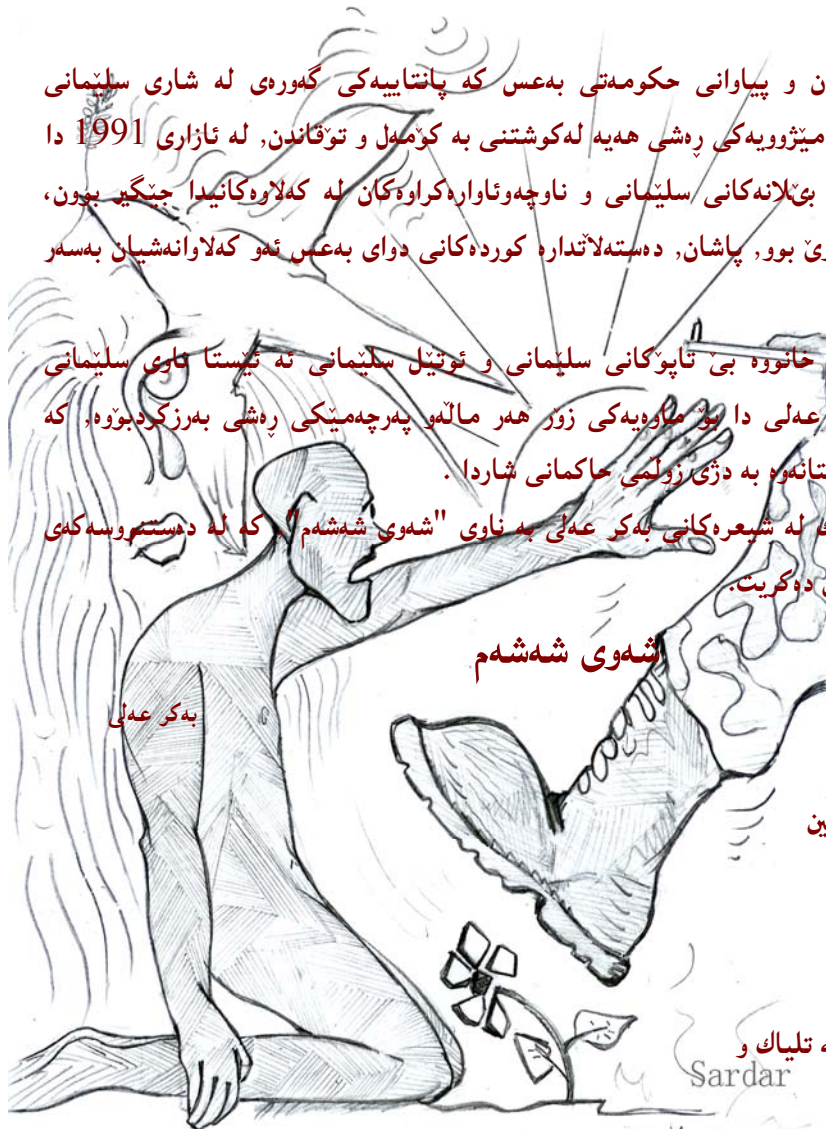 ن و پیاوانی حکومەتی بەعس کە پانتاییەکی گەورەی لە شاری سلێمانی
مێژوویەکی ڕەشی هەیە لەکوشتنی بە کۆمەل و تۆقاندن, لە ئازاری 1991 دا
بێلانەکانی سلێمانی و ناوچەوئاوارەکراوەکان لە کەلاوەکانیدا جێگیر بوون،
رێ بوو, پاشان, دەستەلاتدارە کوردەکانی دوای بەعس ئەو کەلاوانەشیان بەسەر
خانووە بێ تاپۆکانی سلێمانی و ئوتێل سلێمانی ئە ئێستا ناوی سلێمانی
عەلی دا بۆ ماوەیەکی زۆر هەر ماڵەو پەرچەمێکی ڕەشی بەرزکردبۆوە, کە
ستانەوە بە دژی زوڵمی حاکمانی شاردا .
ك لە شیعرەکانی بەکر عەلی بە ناوی "شەوی شەشەم", کە لە دەستنووسەکەی
دەکریت.
شەوی شەشەم
بەکر عەلی
ین
ە تلیاك و
Sardar